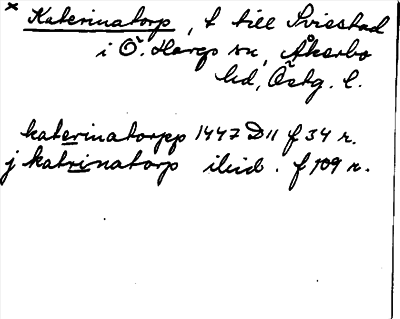 × Katerinatorp, t till Svisstad
i Ö. Hargs sn, Åkerbo
hd, Östg. l.
katerinatorpp 1447 D 11 f 34 r.
j katrinatorp ibid. f 109 r.